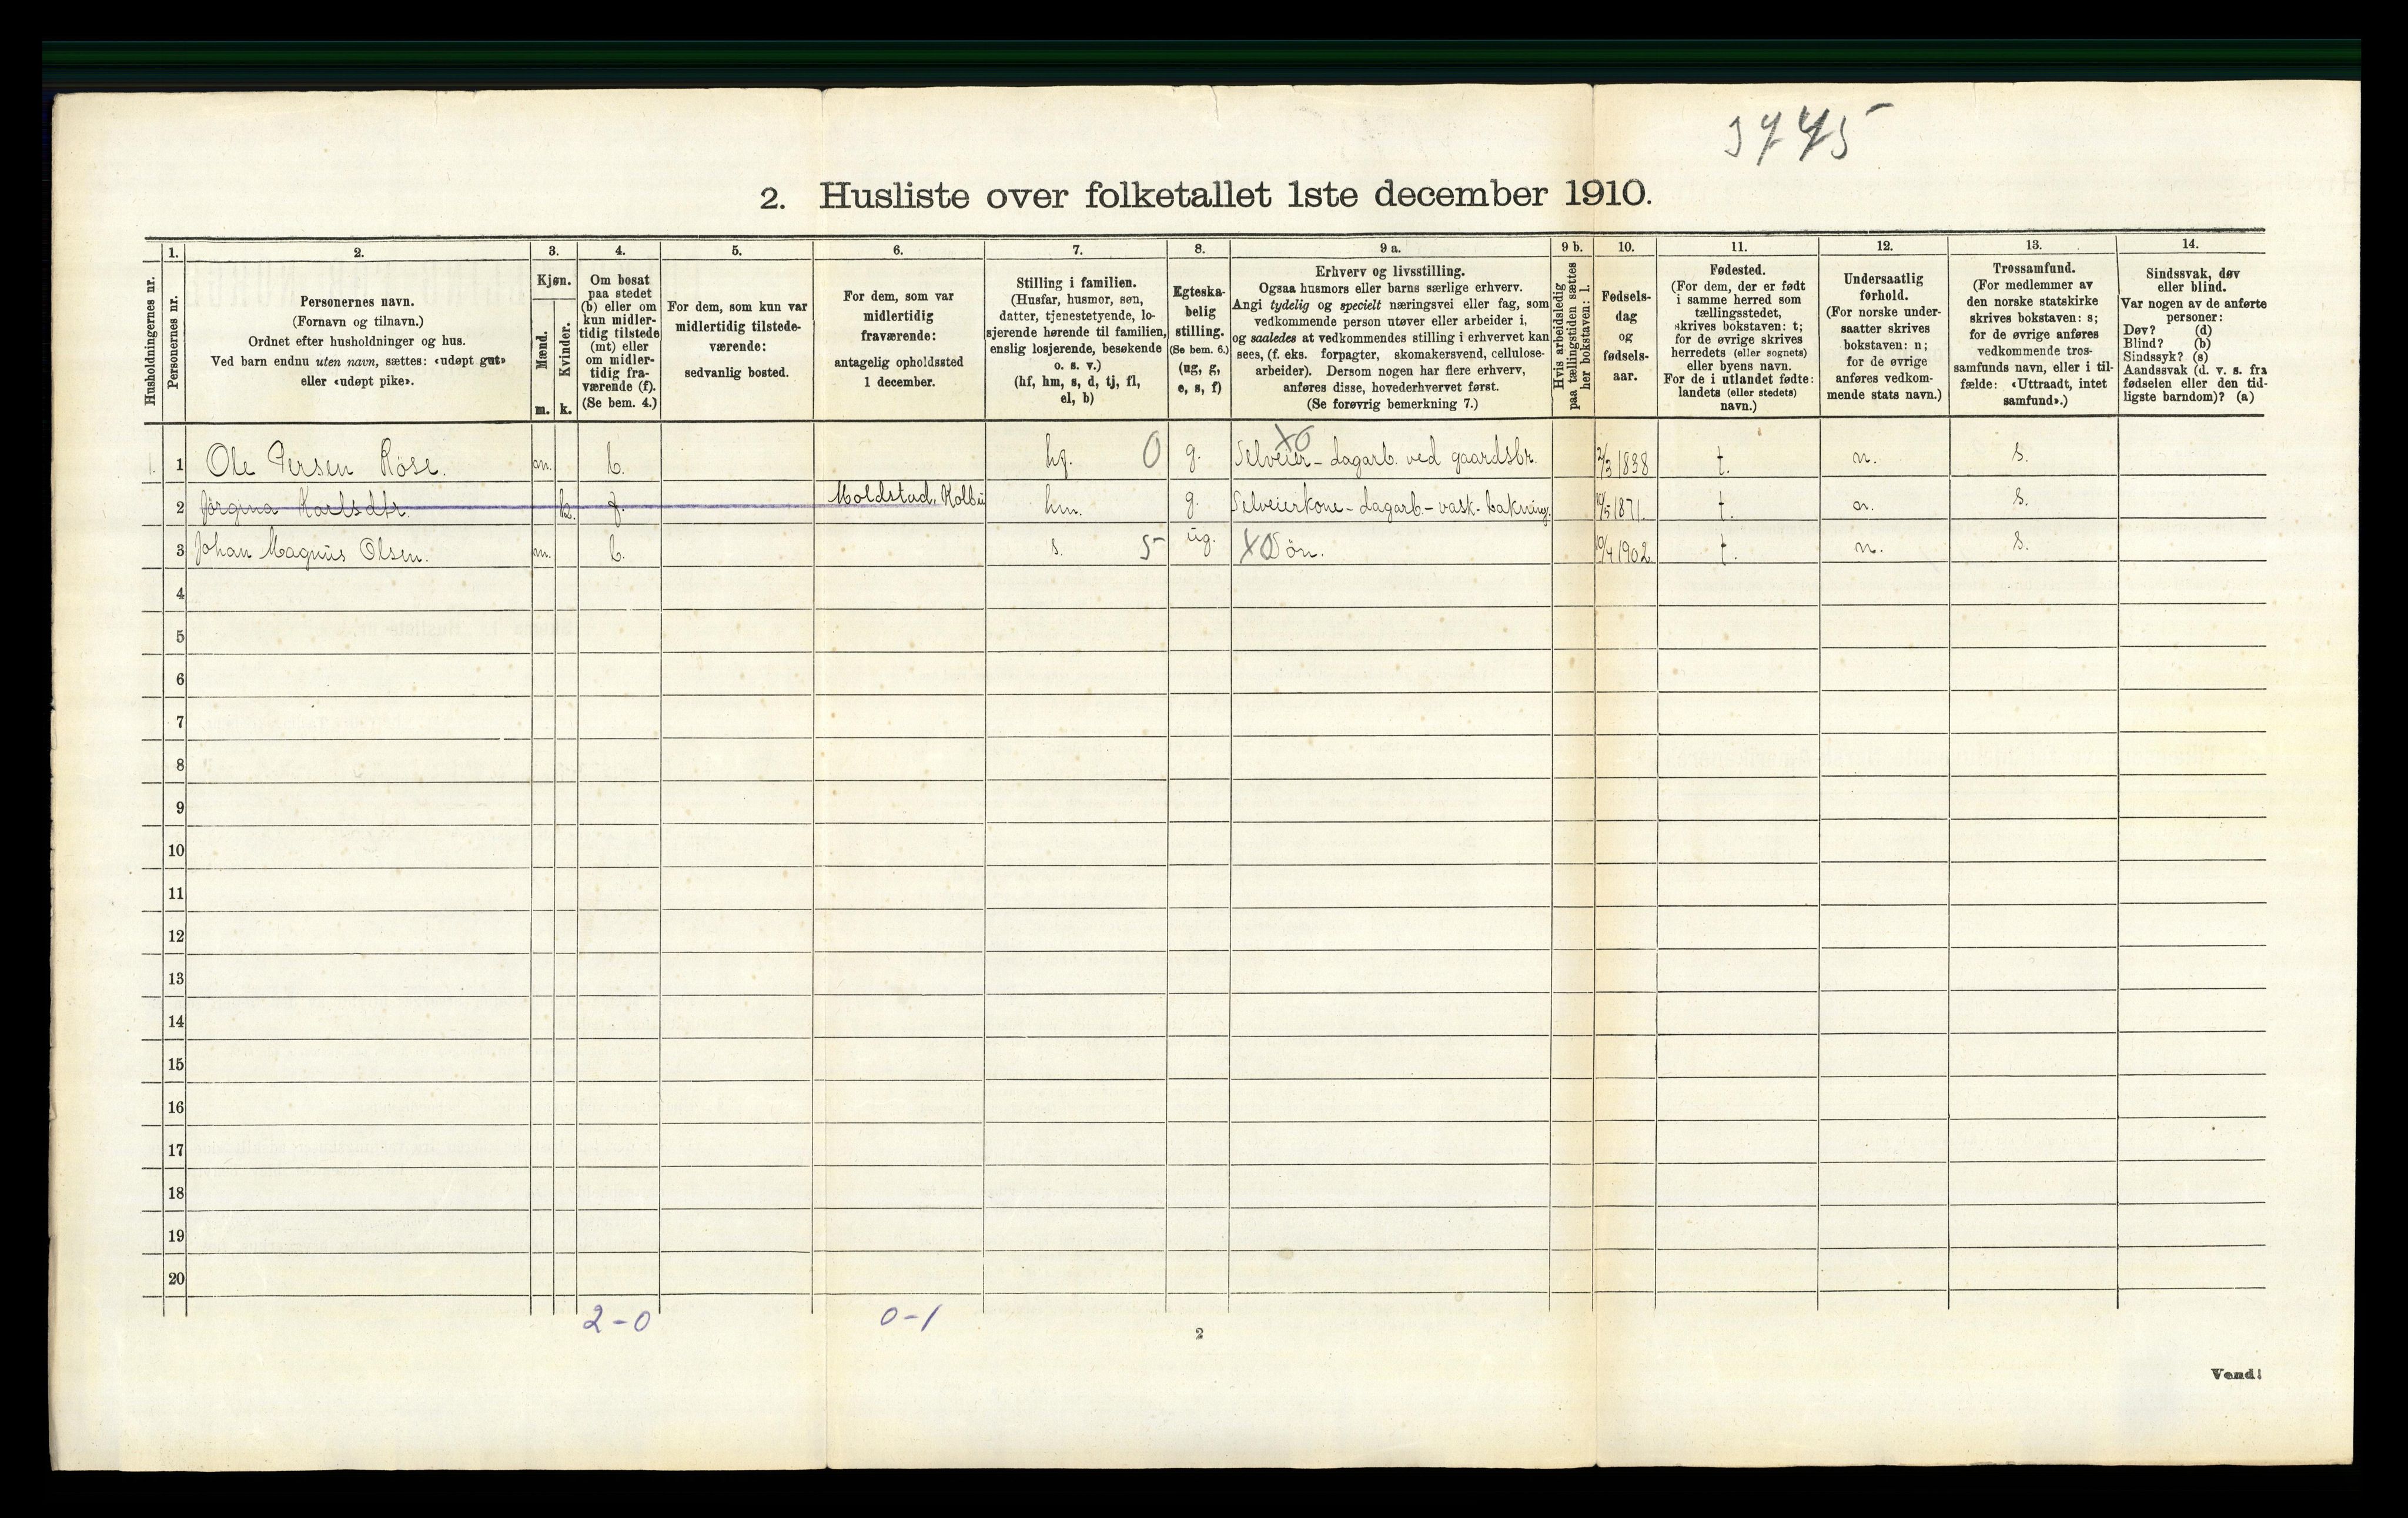 3745
2. Husliste over folketallet 1ste december 1910.
Husholdningernes nr.
1.
Personernes nr.
2.
Personernes navn.
(Fornavn og tilnavn.)
Ordnet efter husholdninger og hus.
Ved barn endnu uten navn, sættes: «udøpt gut»
eller «udøpt pike».
3.
Kjøn.
Mænd.
Kvinder.
m. k.
4.
Om bosat
paa stedet
(b) eller om
kun midler-
tidig tilstede
(mt) eller
om midler-
tidig fra-
værende (f).
(Se bem. 4.)
5.
For dem, som kun var
midlertidig tilstede-
værende:
sedvanlig bosted.
6.
For dem, som var
midlertidig
fraværende:
antagelig opholdssted
1 december.
7.
Stilling i familien.
(Husfar, husmor, søn,
datter, tjenestetyende, lo-
sjerende hørende til familien,
enslig losjerende, besøkende
o. s. v.)
(hf, hm, s, d, tj, fl,
el, b)
8.
Egteska-
belig
stilling.
(Se bem. 6.)
(ug, g,
e, s, f)
9 a.
Erhverv og livsstilling.
Ogsaa husmors eller barns særlige erhverv.
Angi tydelig og specielt næringsvei eller fag, som
vedkommende person utøver eller arbeider i,
og saaledes at vedkommendes stilling i erhvervet kan
sees, (f. eks. forpagter, skomakersvend, cellulose-
arbeider). Dersom nogen har flere erhverv,
anføres disse, hovederhvervet først.
(Se forøvrig bemerkning 7.)
9 b.
Hvis arbeidsledig
paa tællingstiden sættes
her bokstaven: l.
10.
Fødsels-
dag
og
fødsels-
aar.
11.
Fødested.
(For dem, der er født
i samme herred som
tællingsstedet,
skrives bokstaven: t;
for de øvrige skrives
herredets (eller sognets)
eller byens navn.
For de i utlandet fødte:
landets (eller stedets)
navn.)
12.
Undersaatlig
forhold.
(For norske under-
saatter skrives
bokstaven: n;
for de øvrige
anføres vedkom-
mende stats navn.)
13.
Trossamfund.
(For medlemmer av
den norske statskirke
skrives bokstaven: s;
for de øvrige anføres
vedkommende tros-
samfunds navn, eller i til-
fælde: «Uttraadt, intet
samfund».)
14.
Sindssvak, døv
eller blind.
Var nogen av de anførte
personer:
Døv? (d)
Blind? (b)
Sindssyk? (s)
Aandssvak (d. v. s. fra
fødselen eller den tid-
ligste barndom)? (a)
1. 1 Ole Persen Röse. m. b. hg. 0 g. X0 Selveier - dagarb. ved gaardsbr. 2/3 1838 t. n. s.
2 Jørgina Karlsdtr. k. f. Moldstad, Kolbu hm. g. Selveierkone - dagarb. - vask. bakning. 19/5 1871. t. n. s.
3 Johan Magnus Olsen. m. b. s. 5 ug. X0 Sön. 10/4 1902. t. n. s.
4
5
6
7
8
9
10
11
12
13
14
15
16
17
18
19
20
2-0 0-1
2
Vend!